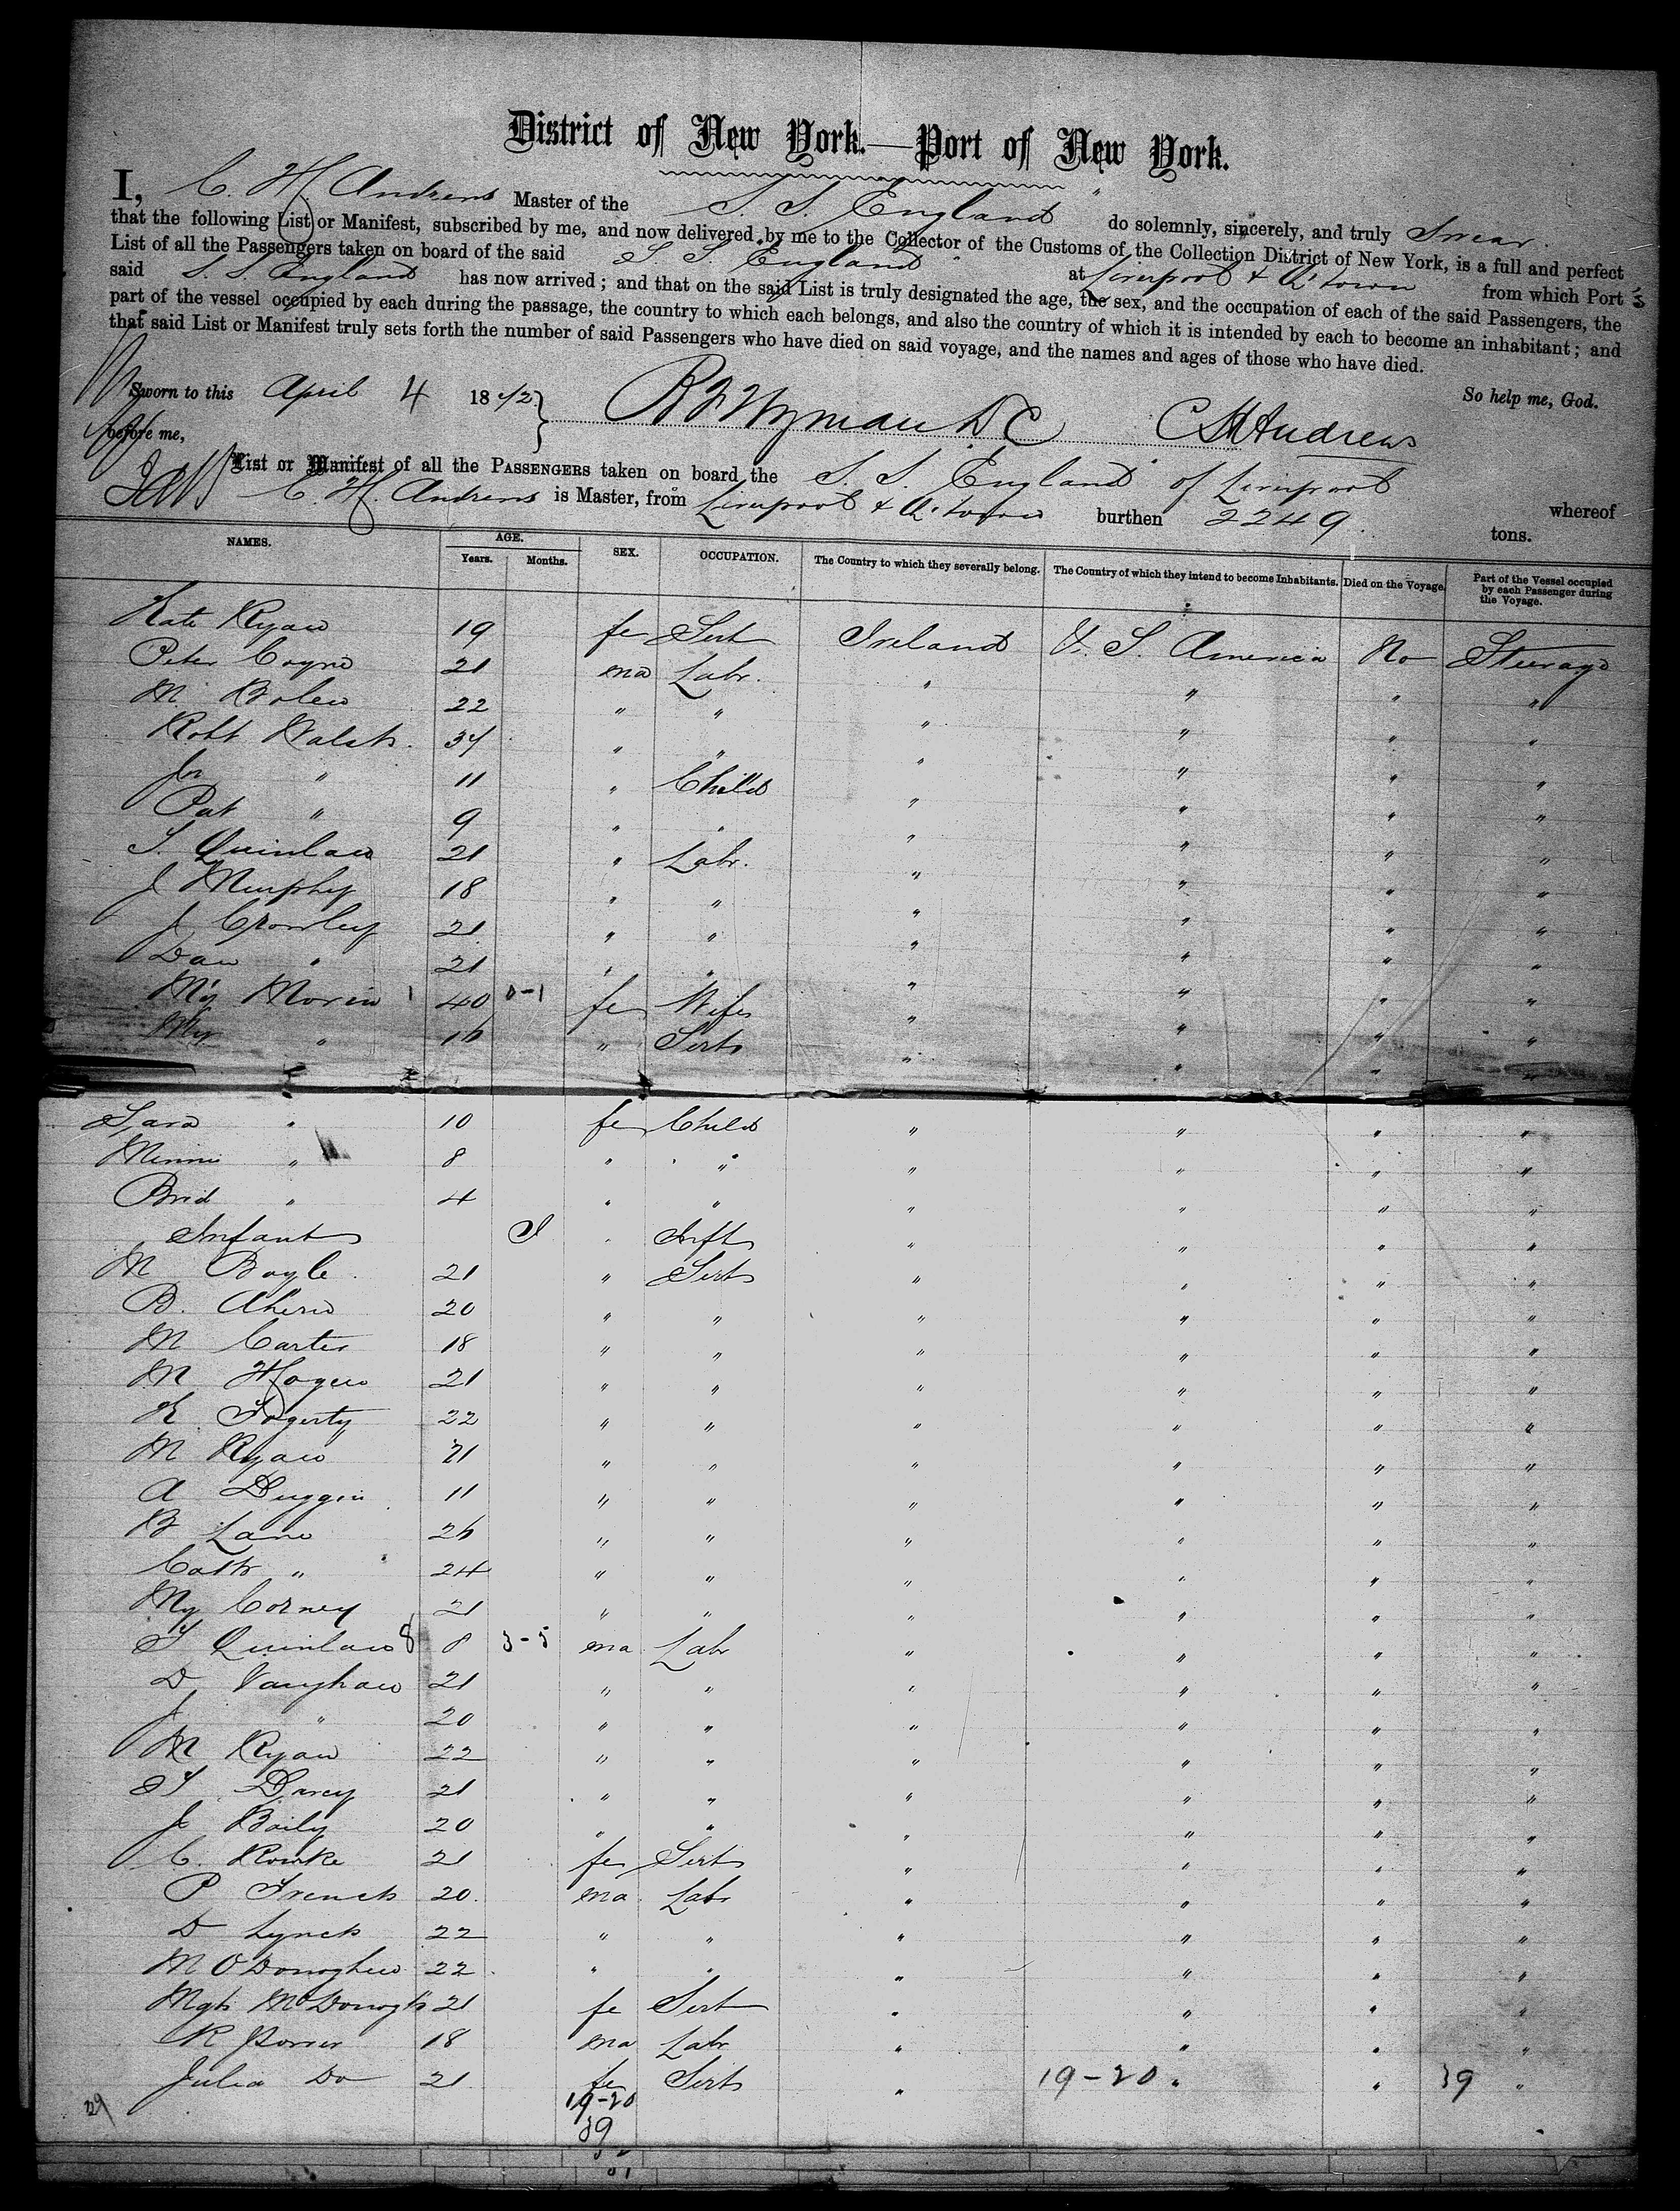 District of New York.—Port of New York.
I, C. H. Andrews Master of the S. S. England do solemnly, sincerely, and truly Swear
that the following List or Manifest, subscribed by me, and now delivered by me to the Collector of the Customs of the Collection District of New York, is a full and perfect
List of all the Passengers taken on board of the said S. S. England at Liverpool & Q'town from which Port
said S. S. England has now arrived; and that on the said List is truly designated the age, the sex, and the occupation of each of the said Passengers, the
part of the vessel occupied by each during the passage, the country to which each belongs, and also the country of which it is intended by each to become an inhabitant; and
that said List or Manifest truly sets forth the number of said Passengers who have died on said voyage, and the names and ages of those who have died.
So help me, God.
Sworn to this April 4 18 C H Andrews
before me,
List or Manifest of all the PASSENGERS taken on board the S. S. England of Liverpool whereof
C. H. Andrews is Master, from Liverpool & Q'town burthen 2249 tons.
NAMES. AGE. Years. Months. SEX. OCCUPATION. The Country to which they severally belong. The Country of which they intend to become Inhabitants. Died on the Voyage. Part of the Vessel occupied by each Passenger during the Voyage.
Kate Ryan 19 fe Servt Ireland U. S. America No Steerage
Peter Coyne 21 ma Labr. " " " "
M Bolen 22 " " " " " "
Robt Walsh 34 " " " " " "
Jn " 11 " Child " " " "
Pat " 9 " " " " " "
T. Quinlan 21 " Labr. " " " "
J Murphy 18 " " " " " "
J Crowley 21 " " " " " "
Dan " 21 " " " " " "
My Morin 1 40 0-1 fe Wife " " " "
My " 16 " Servt " " " "
Sara " 10 fe Child " " " "
Minnie " 8 " " " " " "
Brid " 4 " " " " " "
Infant " Inft " " " "
M Boyle 21 " Servt " " " "
B. Ahern 20 " " " " " "
M Carter 18 " " " " " "
M Hogen 21 " " " " " "
K Fogerty 22 " " " " " "
M Ryan 21 " " " " " "
A Duggin 11 " " " " " "
B Lane 26 " " " " " "
Cath " 24 " " " " " "
My Corney 21 " " " " " "
T Quinlan 8 8 3-5 ma Labr " " " "
D Vaughan 21 " " " " " "
J " 20 " " " " " "
M Ryan 22 " " " " " "
T Darcy 21 " " " " " "
J Baily 20 " " " " " "
C. Rourke 21 fe Servt " " " "
P French 20 ma Labr " " " "
D Lynch 22 " " " " " "
M O'Donoghue 22 " " " " " "
Mgt McDonogh 21 fe Servt " " " "
R Power 18 ma Labr " " " "
Julia Do 21 fe Servt " 19-20 " " 39 "
19-20
39